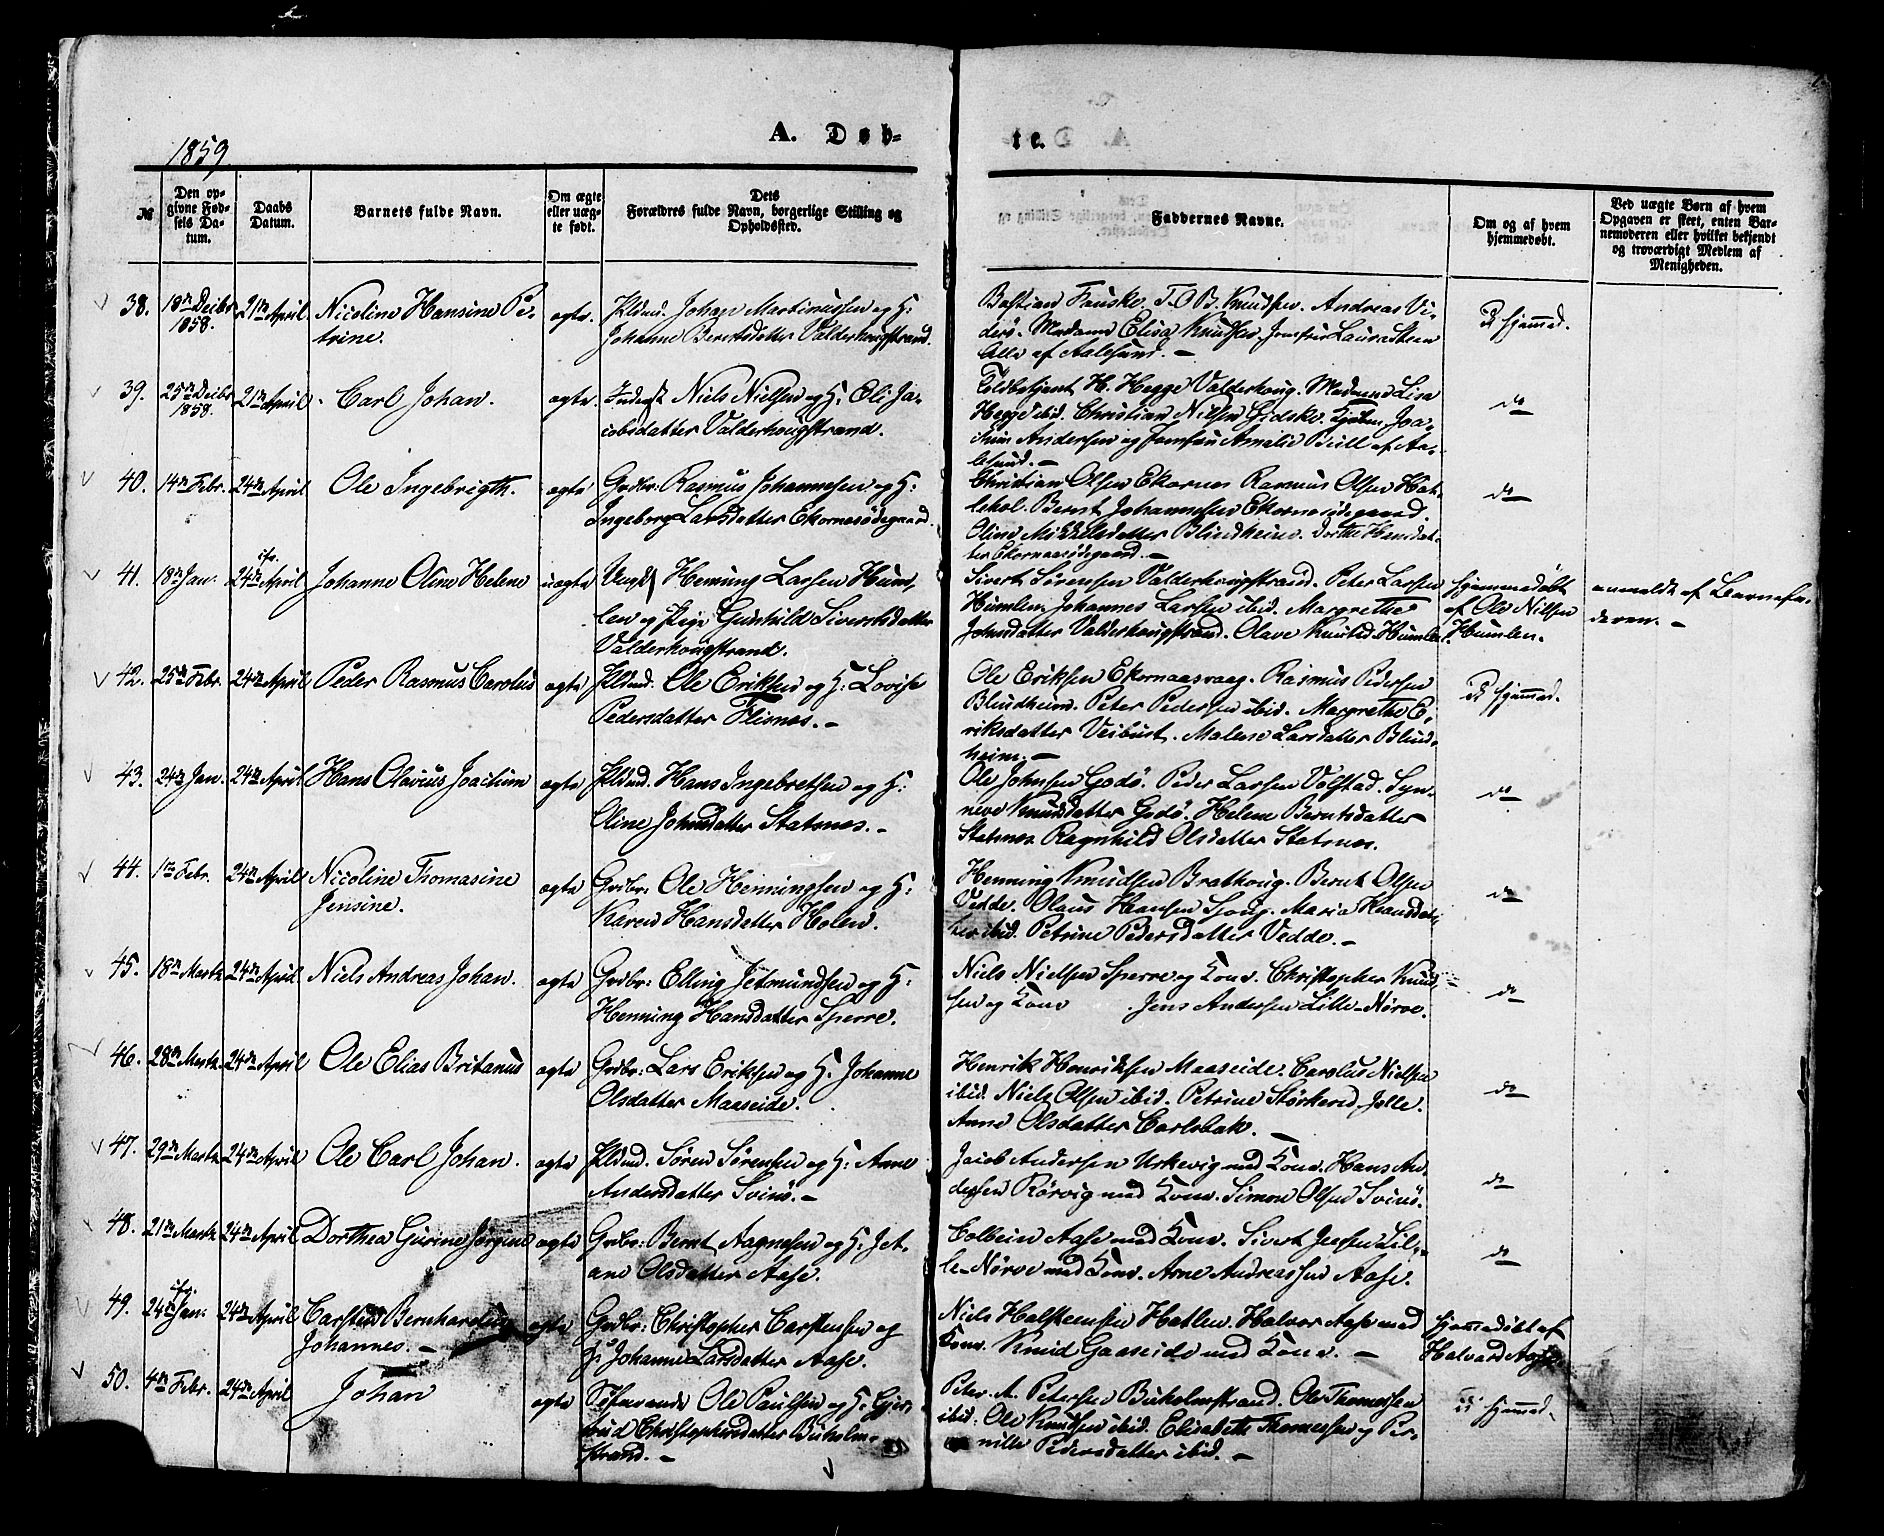 1859
A. Døb-
te.
№
Den op-
givne Fød-
sels Da-
tum.
Daabs
Datum.
Barnets fulde Navn.
Om ægte
eller uæg-
te født.
Dets
Forældres fulde Navn, borgerlige Stilling og
Opholdssted.
Faddernes Navne.
Om og af hvem
hjemmedøbt.
Ved uægte Børn af hvem
Opgaven er skeet, enten Bar-
nemoderen eller hvilket bekjendt
og troværdigt Medlem af
Menigheden.
38. 18de Decbr 1858. 21de April Nicoline Hansine Pe-
trine.
ægte.
Johan Martinussen og H:
Johanne Berntsdatter Valderhougstrand.
Bastian Fauske. T. O. B. Knudsen. Andreas Vi-
derö. Madame Elisa Knudsen, Jomfru Laura Steen
Alle af Aalesund. –
Ei hjemmed.
39. 25de Decbr 1858. 21de April Carl Johan.
ægte
Inderst Niels Nielsen og H: Oli Ja-
cobsdatter Valderhougstrand.
Toldbetjent H. Hegge Valderhoug. Madame Lise
Hegge ibid. Christian Nilsen Gjdske. Kjøbm. Joa-
chim Andersen og Jomfru Amalie Bull af Aa-
lesund. –
do
40. 14de Febr. 24de April Ole Ingebrigth.
ægte
Grdbr: Rasmus Johannesen og H:
Ingeborg Larsdatter Ekornesødegaard.
Christian Olsen Ekornes Rasmus Olsen Hat-
lehol. Bernt Johannesen Ekornesødegaard
Oline Mikkelsdatter Blindheim. Dorthe Hansdat-
ter Ekornaasødegaard. –
do
41. 18de Jan. 24de April Johanne Oline Helene
uægte
Ungk. Henning Larsen Hum-
len og Pige Gunhild Sivertsdatter
Valderhougstrand.
Sivert Sørensen Valderhougstrand. Peter Larsen
Humlen, Johannes Larsen ibid. Margrethe
Johnsdatter Valderhougstrand. Olave Knutsd. Humlen.
hjemmedøbt
af Ole Nilsen
Humlen.
anmeldt af Barnefa-
deren. –
42. 25de Febr. 24de April Peder Rasmus Carolus
ægte
Ole Eriksen og H: Lovise
Pedersdatter Flisnes. –
Ole Eriksen Ekornaasvaag. Rasmus Pedersen
Blindheim. Peter Pedersen ibid. Margrethe E-
riksdatter Veibust. Malene Larsdatter Blind-
heim. –
Ei hjemmed.
43. 24de Jan. 24de April Hans Olavus Joachim
ægte
Hans Ingebretsen og H:
Oline Johnsdatter Slatsnes. –
Ole Johnsen Godö. Peder Larsen Volstad. Syn-
neve Knudsdatter Godö. Helene Berntsdatter
Ragnhild Olsdatter
do
44. 1ste Febr. 24de April Nicoline Thomasine
Jensine.
ægte
Grdbr: Ole Henningsen og H:
Karen Hansdatter Holen.
Henning Knudsen Brathoug. Bernt Olsen
Vedde. Olaus Hansen Maria Hansdat-
ter ibid. Petrine Pedersdatter Vedde. –
do
45. 18de Marts 24de April Niels Andreas Johan.
ægte
Grdbr: Elling Jetmundsen og H:
Henning Hansdatter Sperre.
Niels Nielsen Sperre og Kone. Christopher Knud-
sen og Kone. Jens Andersen Lille-Nörve.
do
46. 28de Marts 24de April Ole Elias Britanus
ægte
Grdbr: Lars Eriksen og H: Johanne
Olsdatter Maaseide.
Henrik Henriksen Maaseide. Carolus Nielsen
ibid. Niels Olsen ibid. Petrine Störkersd.
Anne Olsdatter Carlsbak. –
do
47. 29de Marts 24de April Ole Carl Johan.
ægte
Sören Sörensen og H: Anne
Andersdatter Svinö. –
Jacob Andersen Urkevig med Kone. Hans An-
dersen Rörvig med Kone. Simon Olsen Svinö.
do
48. 21de Marts 24de April Dorthea Gurine Jörgine
ægte
Grdbr: Bernt Aagnesen og H: Jet-
ane Olsdatter Aase.
Colbein Aase med Kone. Sivert Jensen Lil-
le-Nörve med Kone. Arne Andreassen Aase.
do
49. 24de Jan. 24de April Carsten Bernhardus
Johannes. –
ægte
Grdbr: Christopher Carstensen og
H: Johanne Larsdatter Aase.
Niels Halsteensen Hatlen. Halvor Aase med
Kone. Knud Gaaseide med Kone. –
hjemmedøbt af
Halvard Aase
50. 4de Febr. 24de April Johan
ægte
Söfarende Ole Paulsen og H: Gjer-
trud Christophersdatter Buholm-
strand. –
Peter A. Petersen Buholmstrand. Ole Thomassen
ibid. Ole Knudsen ibid. Elisabeth Thomassen og Per-
nille Pedersdatter ibid. –
Ei hjemmed.